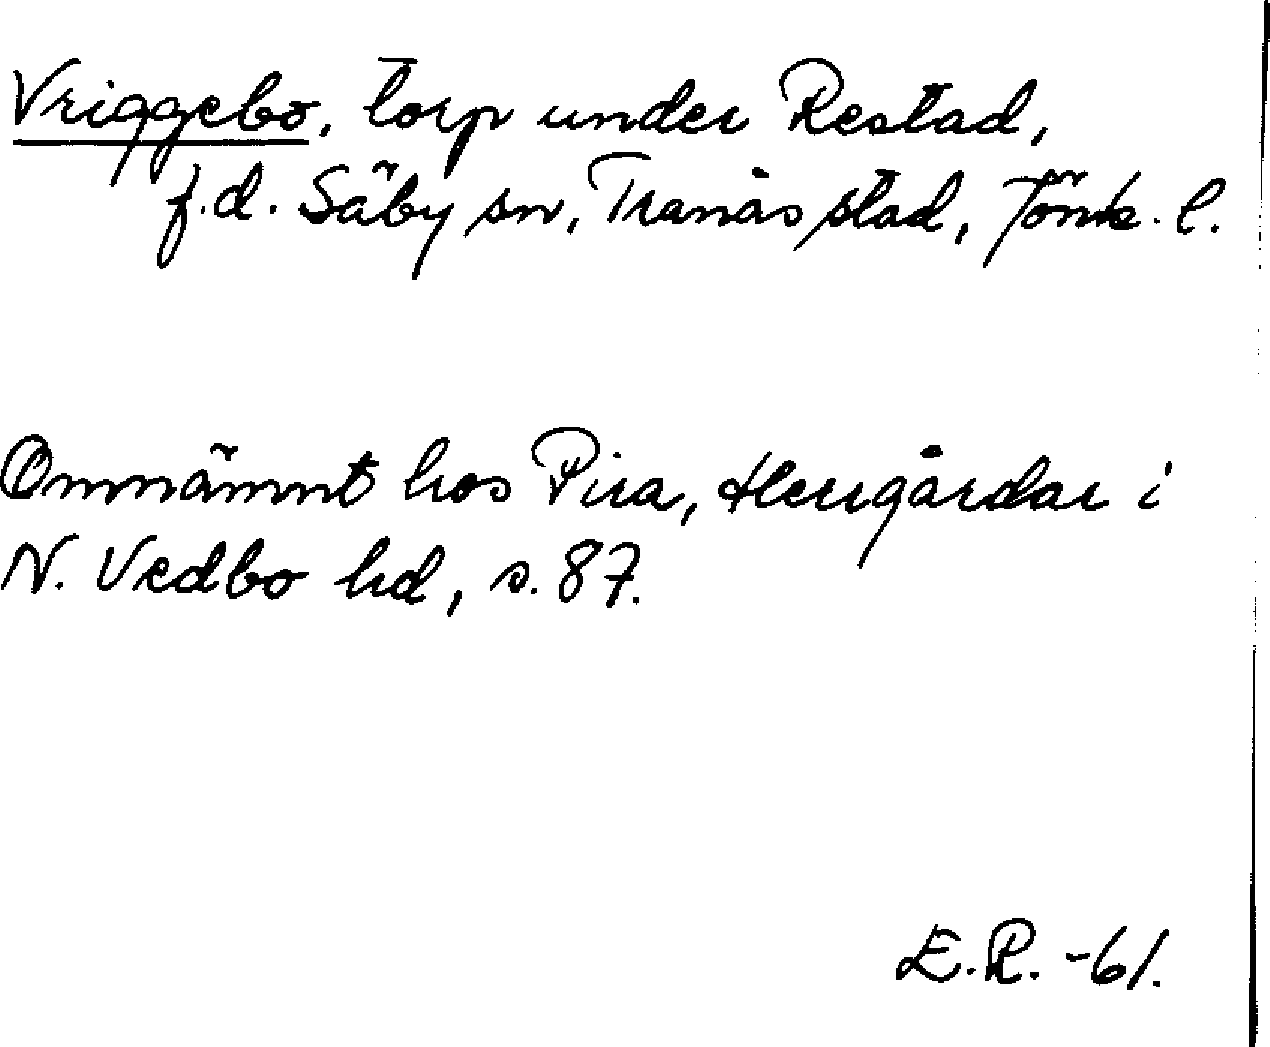 Vriggebo, torp under Restad,
f.d. Säby sn, Tranås stad, Jönk. l.
Omnämnt hos Pira, Herrgårdar i
N. Vedbo hd, s. 87.
E.R. -61.